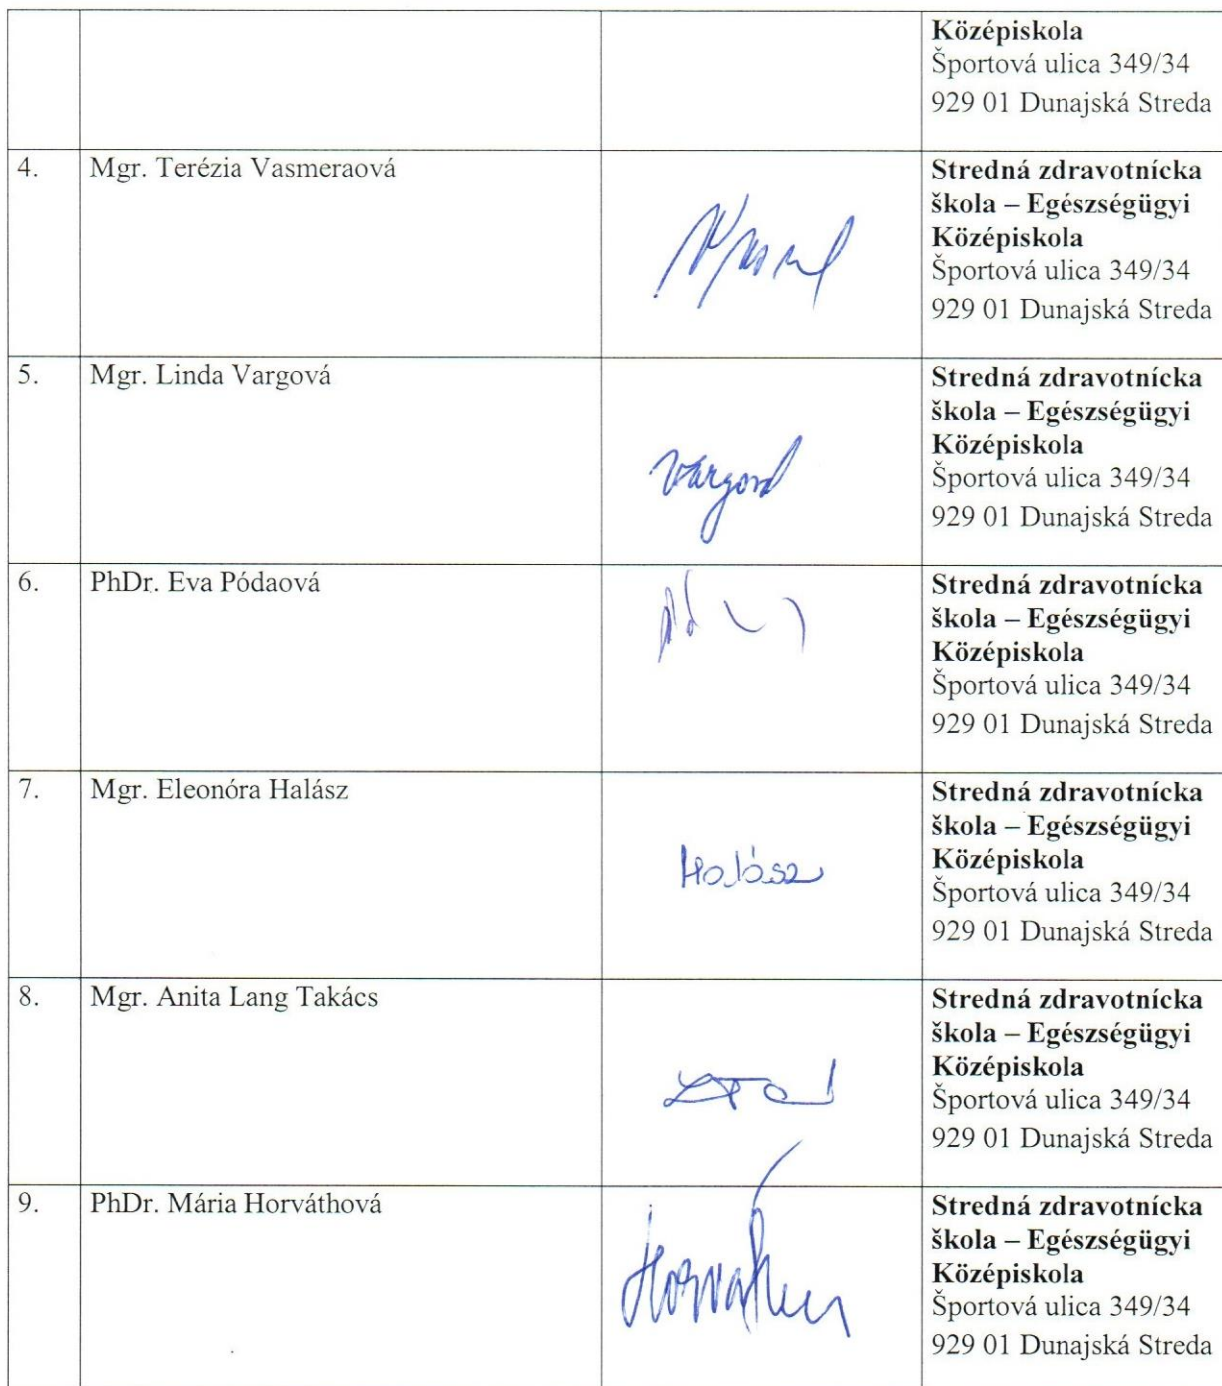 Középiskola
Športová ulica 349/34
929 01 Dunajská Streda
4.
Mgr. Terézia Vasmeraová
Stredná zdravotnícka
škola – Egészségügyi
Középiskola
Športová ulica 349/34
929 01 Dunajská Streda
5.
Mgr. Linda Vargová
Vargová
Stredná zdravotnícka
škola – Egészségügyi
Középiskola
Športová ulica 349/34
929 01 Dunajská Streda
6.
PhDr. Eva Pódaová
Stredná zdravotnícka
škola – Egészségügyi
Középiskola
Športová ulica 349/34
929 01 Dunajská Streda
7.
Mgr. Eleonóra Halász
Halász
Stredná zdravotnícka
škola – Egészségügyi
Középiskola
Športová ulica 349/34
929 01 Dunajská Streda
8.
Mgr. Anita Lang Takács
Stredná zdravotnícka
škola – Egészségügyi
Középiskola
Športová ulica 349/34
929 01 Dunajská Streda
9.
PhDr. Mária Horváthová
Stredná zdravotnícka
škola – Egészségügyi
Középiskola
Športová ulica 349/34
929 01 Dunajská Streda